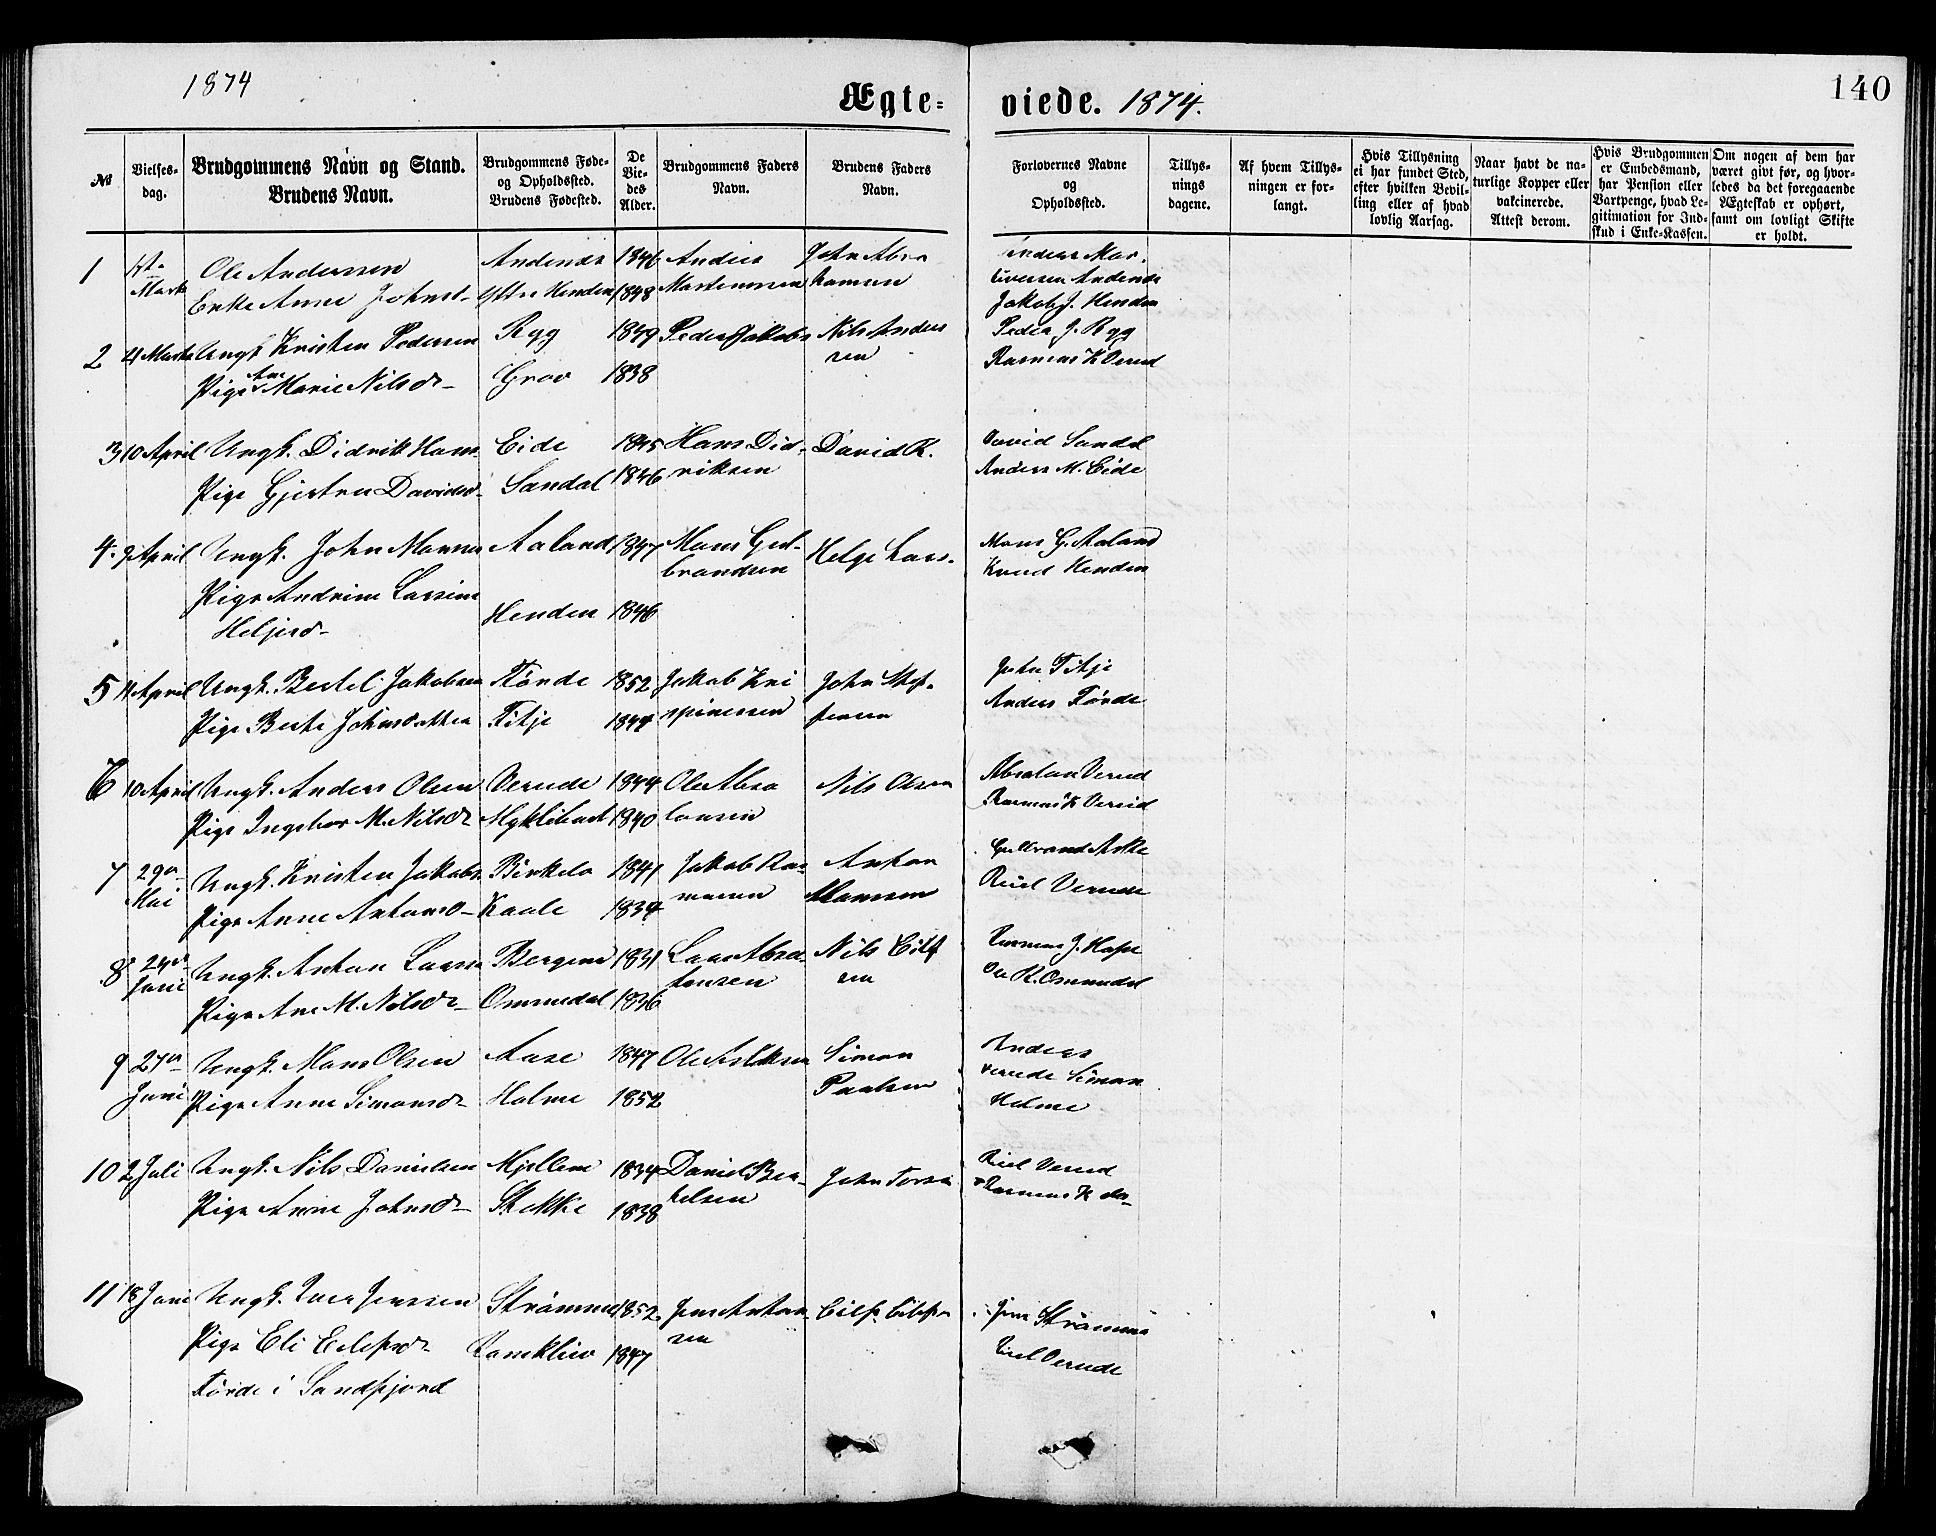 1874
Ægte-
viede. 1874.
140
№
Vielses-
dag.
Brudgommens Navn og Stand.
Brudens Navn.
Brudgommens Føde-
og Opholdssted.
Brudens Fødested.
De
Vie-
des
Alder.
Brudgommens Faders
Navn.
Brudens Faders
Navn.
Forlovernes Navne
og
Opholdssted.
Tillys-
nings
dagene.
Af hvem Tillys-
ningen er for-
langt.
Hvis Tillysning
ei har fundet Sted,
efter hvilken Bevil-
ling eller af hvad
lovlig Aarsag.
Naar havt de na-
turlige Kopper eller
vakcinerede.
Attest derom.
Hvis Brudgommen
er Embedsmand,
har Pension eller
Vartpenge, hvad Le-
gitimation for Ind-
skud i Enke-Kassen.
Om nogen af dem har
været givt før, og hvor-
ledes da det foregaaende
Ægteskab er ophørt,
samt om lovligt Skifte
er holdt.
1
Marts
Ole Anderssen
Enke Anne Johnsd-
Andenæs
Ytre Henden
1846
1848
Anders
Mortenssen
John Abra
hamsen
Anders Mor.
Andenæs
Jakob J. Henden
2
4 Marts
Ungk. Kristen Pedersen
Pige Ane Marie Nilsdr-
Rygg
Grov
1849
1838
Peder Jakobs
Nils Anders
sen
Peder J. Rygg
Rasmus K Verud
3
10 April
Ungk. Didrik Hans
Pige Gjertru Davidsd-
Eide
Sandal
1845
1846
Hans Did-
riksen
David R.
David Sandal
Anders M. Eide
4.
9 April
Ungk. John Monsen
Pige Andrine Larsine
Heljesd-
Aaland
Henden
1847
1846
Mons Gul-
brandsen
Helge Lars-
Mons G. Aaland
Knud Henden
5
11 April
Ungk. Bertel Jakobsen
Pige Berte Johnsdatter
Förde
Fitje
1852
1844
Jakob Kri
spinussen
John Stef-
fensen
John Fitje
Anders Förde
6
10 April
Ungk. Anders Olsen
Pige Ingebor M. Nilsdr
Verude
Myklibust
1844
1840
Ole Absa
lonsen
Nils Olsen
Absalon Verud
Rasmus K Verud
7
29de
Mai
Ungk. Kristen Jakobs.
Pige Anne Antonsd-
Birkelo
Kaale
1841
1834
Jakob Ras-
mussen
Anton
Monssen
Gullbrand Aske
Verude
8
24de
Juni
Ungk. Anton Larsen
Pige Ane M. Nilsdr-
Bergem
Ommedal
1831
1836
Lars Absa-
lonsen
Nils Eilf
sen
Rasmus J. Hope
Ole R. Ommedal
9
27de
Juni
Ungk. Mons Olsen
Pige Anne Simonsdr
Aase
Holme
1847
1852
Simon
Paulsen
Anders
Verude Simon
Holme
10
2 Juli
Ungk. Nils Danielsen
Pige Anne Johnsdr-
Mjellem
Stokke
1834
1838
Daniel Ber-
telsen
John Torsen
Verud
Rasmus K do-
11
18 Juni
Ungk. Iver Jenssen
Pige Eli Eilefsdr
Förde i Sandfjord
Strömmen
Ramkliev
1852
1847
Jens Anton-
sen
Eilf. Eilefsen
Jens Strömmen
Verude